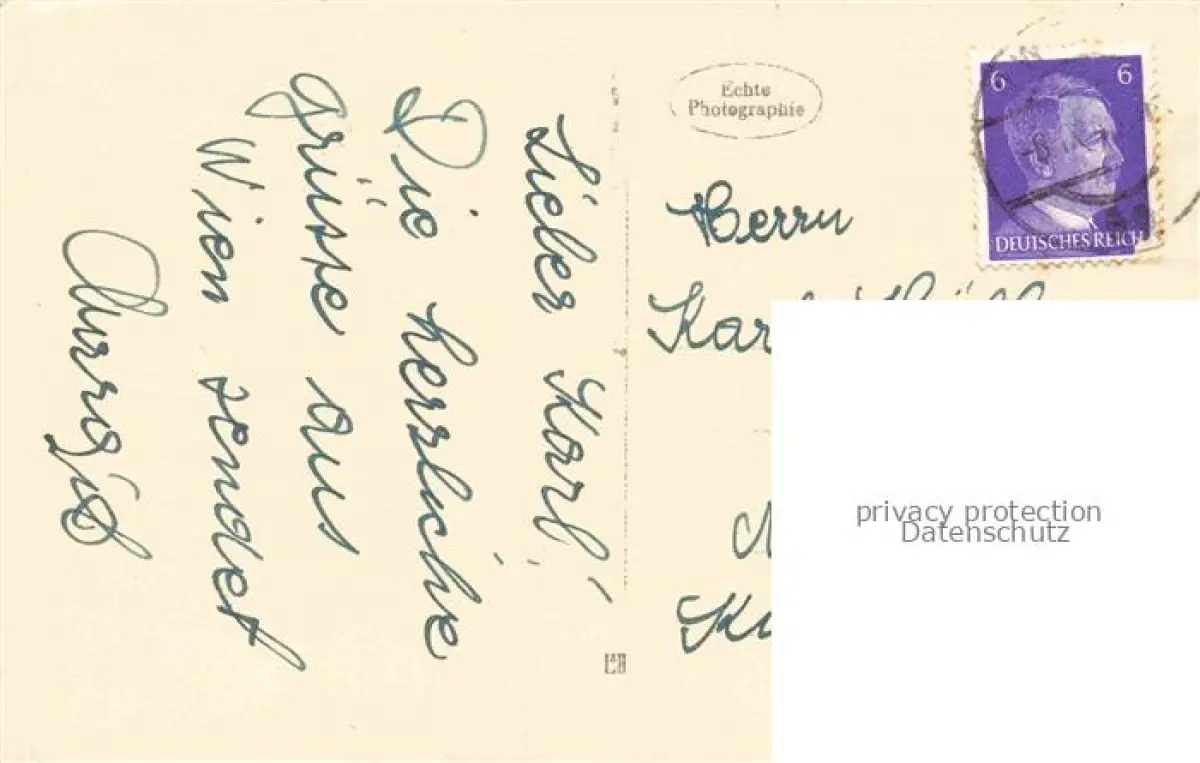 Lieber Karl!
Die herzliche
grüsse aus
Wien sendet
Echte
Photographie
6 6
DEUTSCHES REICH
Herrn
Karl
privacy protection
Datenschutz